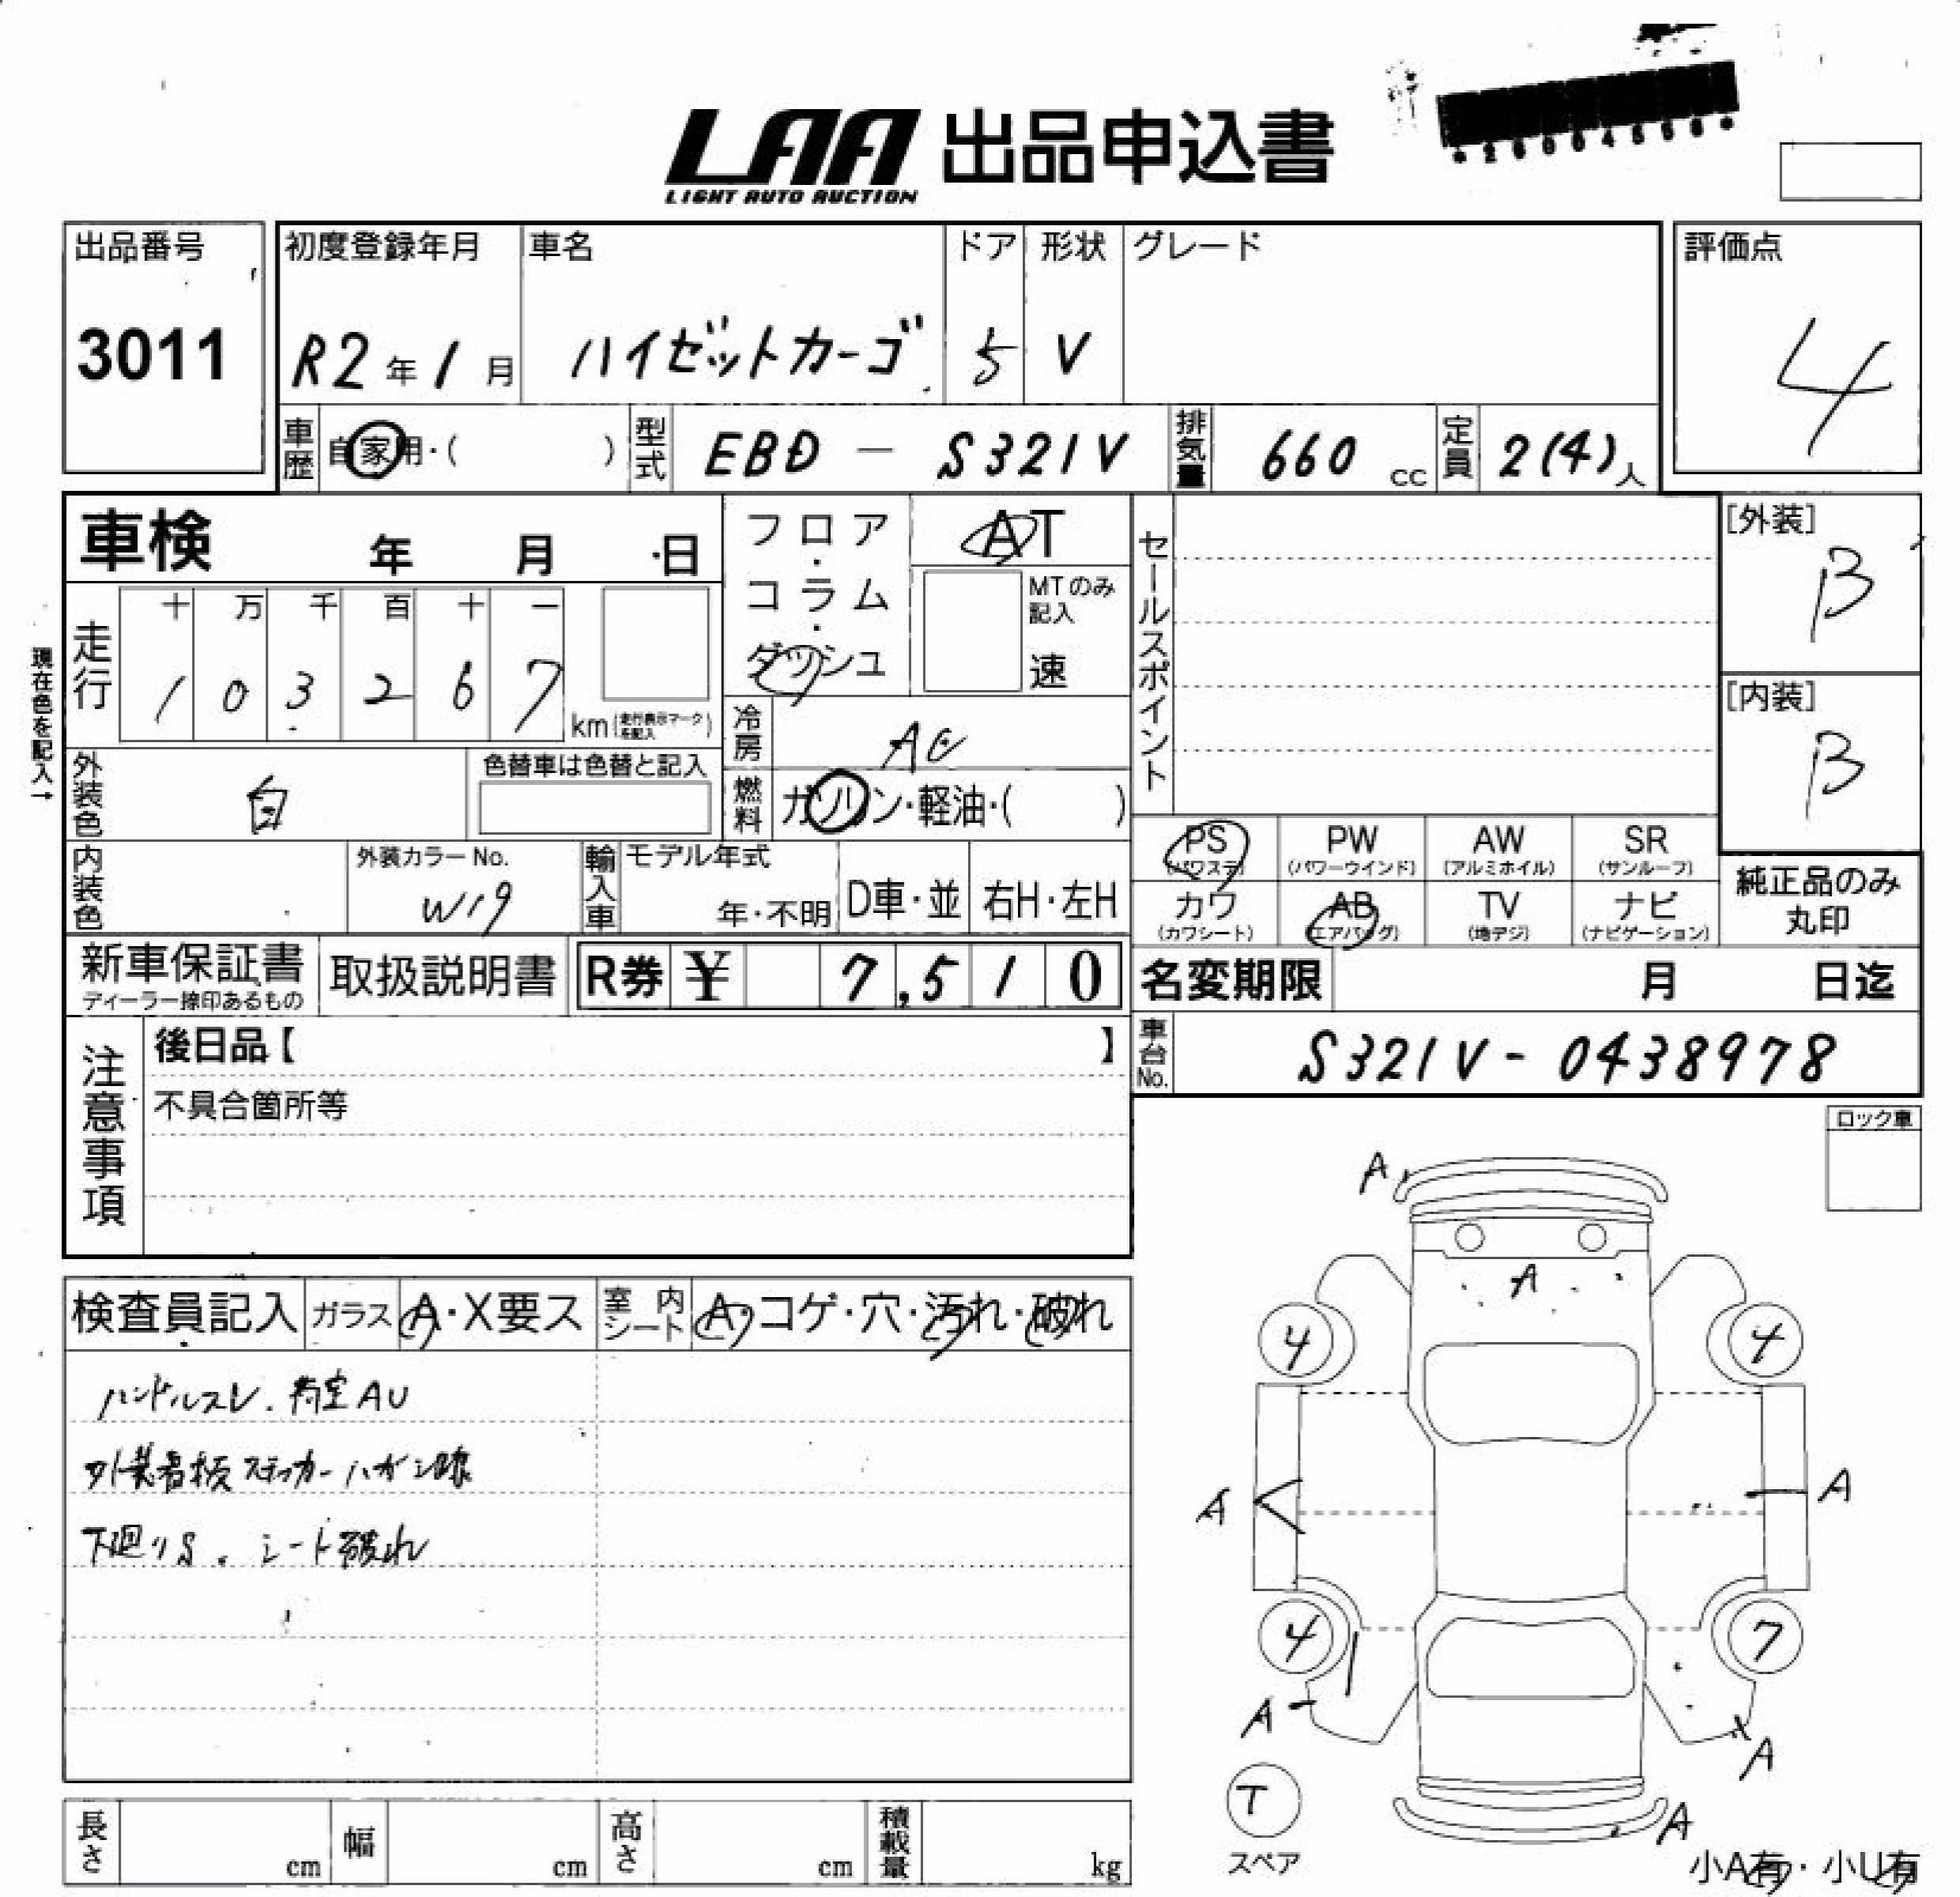 LAA 出品申込書
LIGHT AUTO AUCTION
出品番号
3011
初度登録年月
R2年1月
車名
ハイゼットカーゴ
ドア
5
形状
V
グレード
評価点
4
車歴 自家用・( )
型式 EBD - S321V
排気量 660 cc
定員 2(4)人
車検 年 月 日
フロア・コラム・ダッシュ
AT
MTのみ記入
速
セールスポイント
[外装]
B
[内装]
B
現在色を記入→
走行
十 万 千 百 十 一
1 0 3 2 6 7
km(走行表示マークを記入)
冷房 AC
外装色 白
色替車は色替と記入
燃料 ガソリン・軽油・( )
内装色
外装カラーNo.
W19
輸入車
モデル年式
年・不明
D車・並
右H・左H
PS (パワステ)
PW (パワーウインド)
AW (アルミホイル)
SR (サンルーフ)
カワ (カワシート)
AB (エアバッグ)
TV (地デジ)
ナビ (ナビゲーション)
純正品のみ
丸印
新車保証書
ディーラー捺印あるもの
取扱説明書
R券 ¥ 7,510
名変期限 月 日迄
車台No. S321V-0438978
注意事項
後日品【 】
不具合箇所等
ロック車
検査員記入
ガラス A・X要ス
室内シート A・コゲ・穴・汚れ・破れ
ハンドルスレ.荷室AU
外装看板ステッカーハガシ跡
下廻りS.シート破れ
A
A
4
4
A
A
4
7
A
A
T
スペア
A
小A有・小U有
長さ cm
幅 cm
高さ cm
積載量 kg